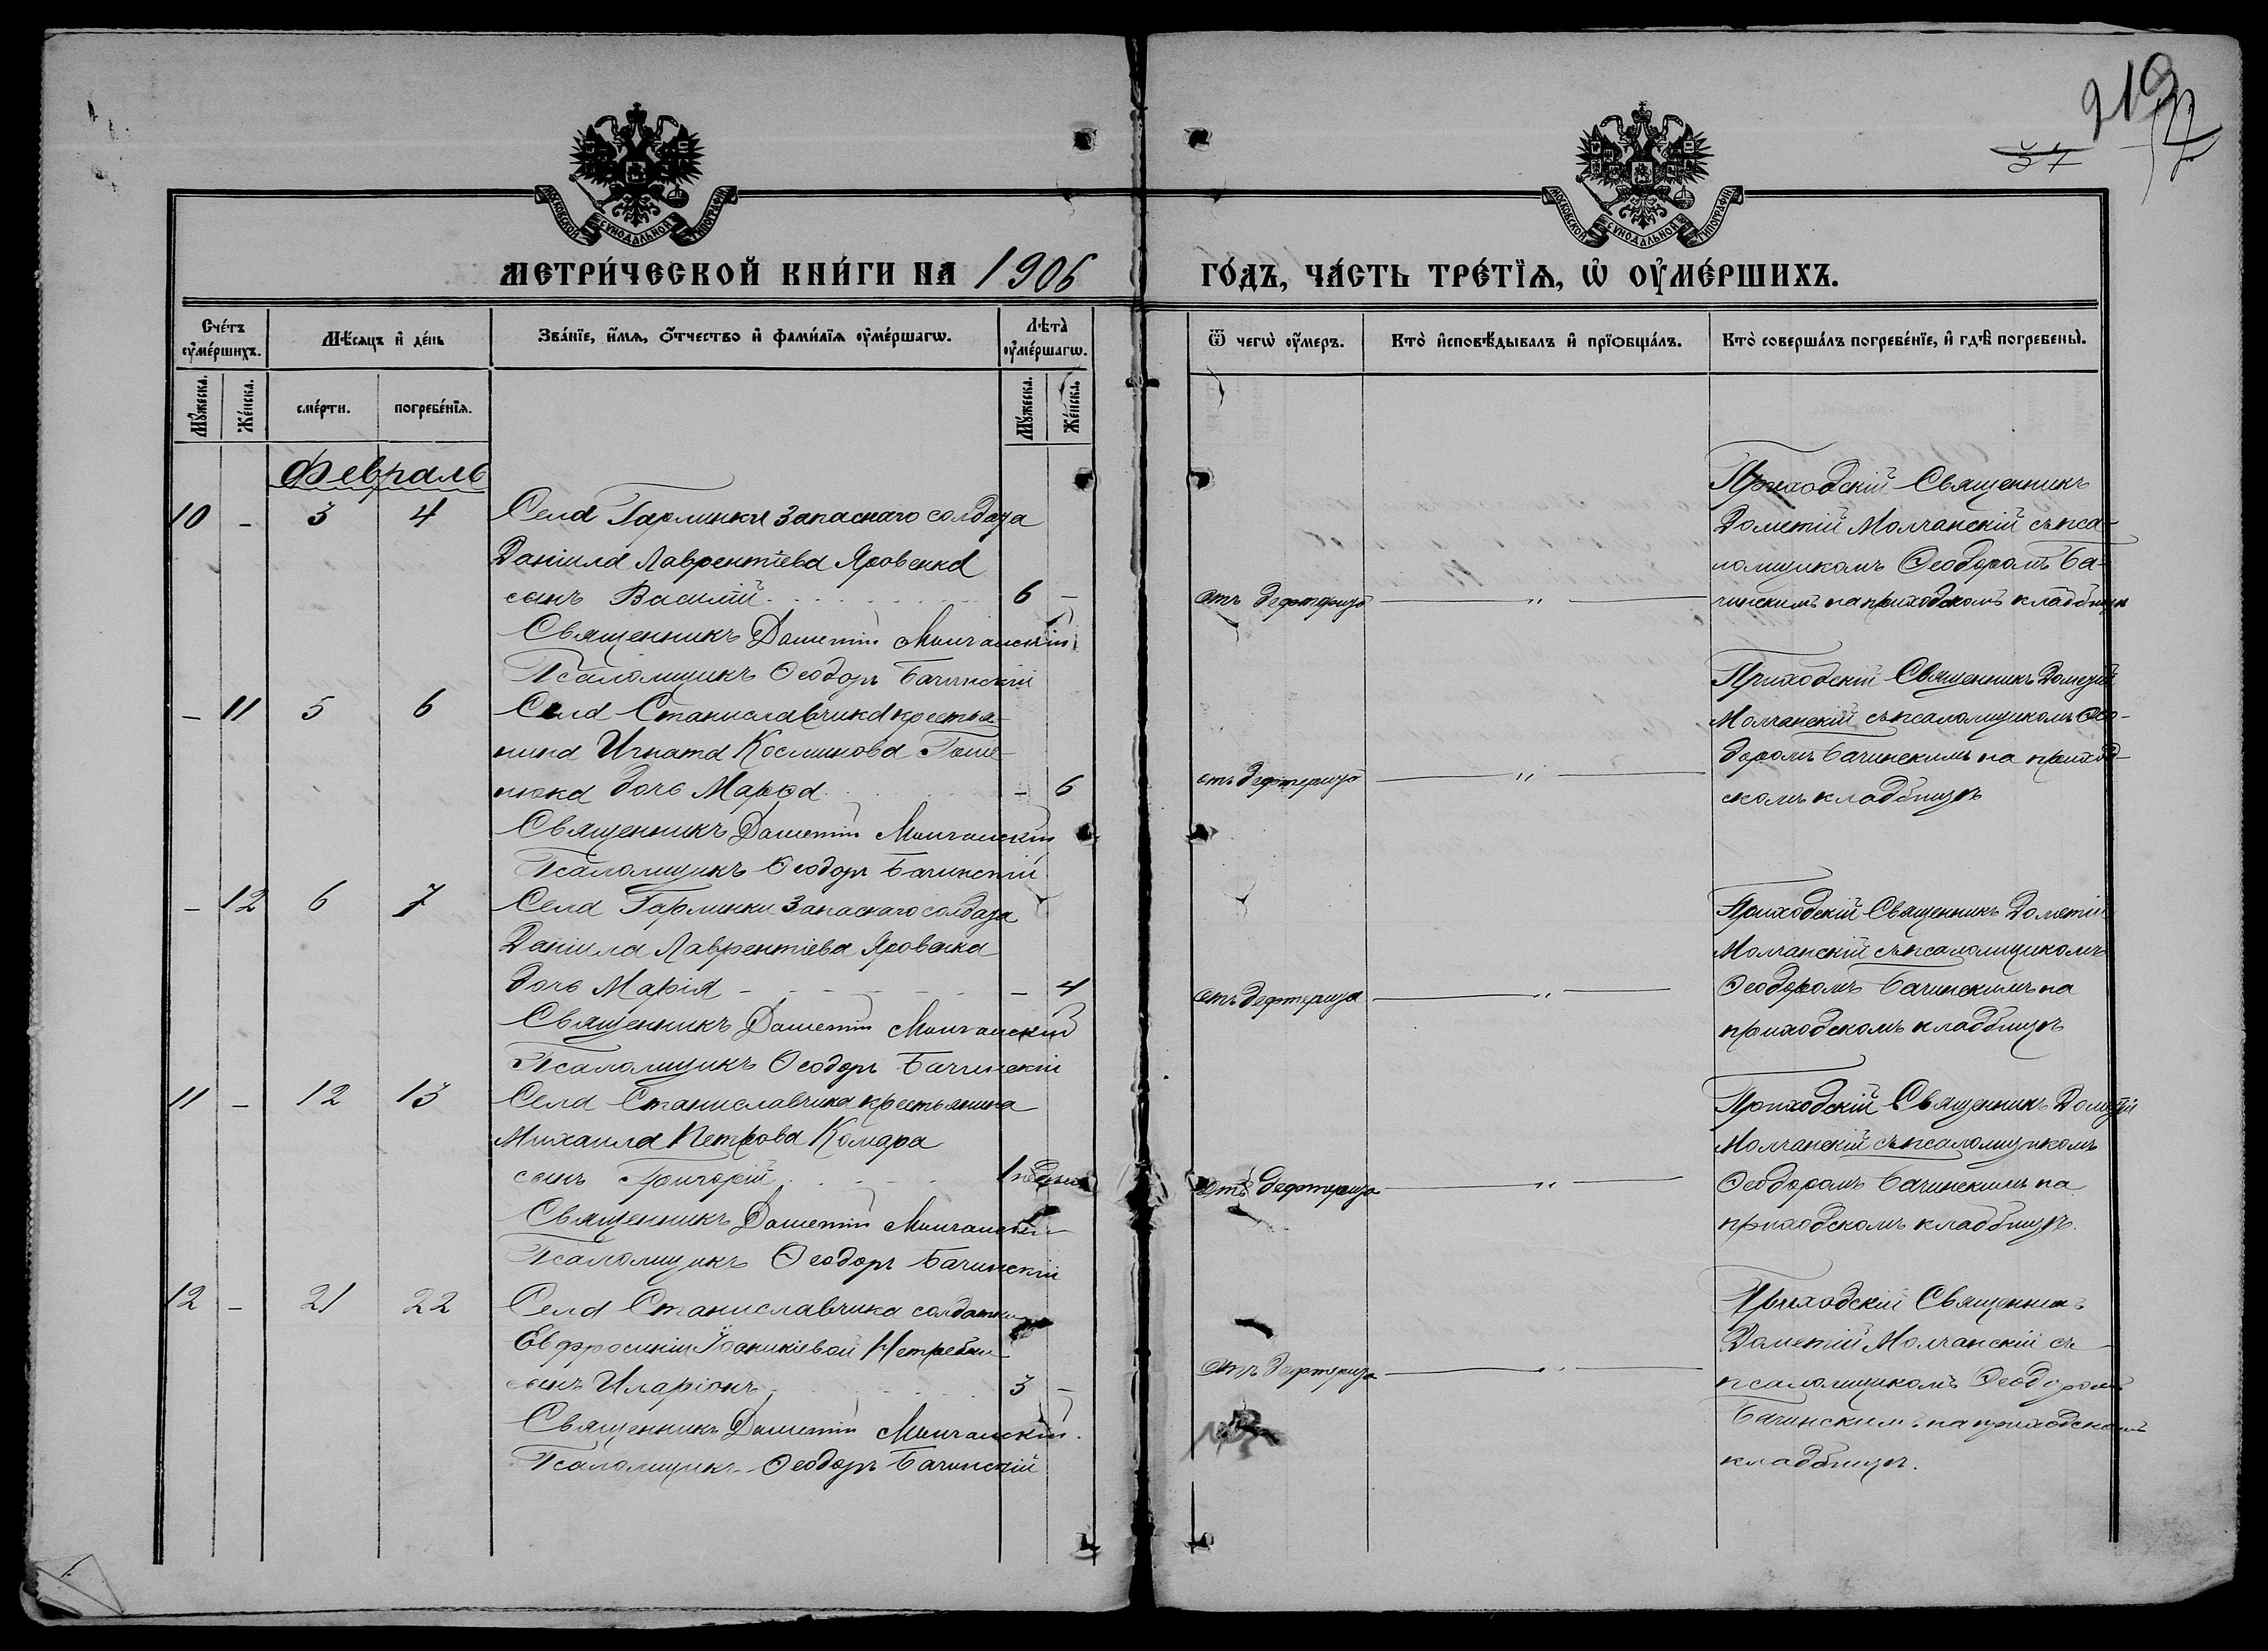 219
37
МОСКОВСКОЙ СѴНОДАЛЬНОЙ ТИПОГРАФІИ
МОСКОВСКОЙ СѴНОДАЛЬНОЙ ТИПОГРАФІИ
МЕТРИ́ЧЕСКОЙ КНИ́ГИ НА 1906
ГО́ДЪ, ЧА́СТЬ ТРЕ́ТЇѦ, Ѡ҆ ОУ҆МЕ́РШИХЪ.
Сче́тъ оу҆ме́ршихъ.
Мѣ́сѧцъ и҆ де́нь
Зва́нїе, и҆́мѧ, ѻ҆́тчество и҆ фами́лїѧ оу҆ме́ршагѡ.
Лѣ́та̀ оу҆ме́ршагѡ.
Мꙋ́жеска.
Же́нска.
сме́рти.
погребе́нїѧ.
Мꙋ́жеска.
Же́нска.
Ѿ чегѡ̀ оу҆́меръ.
Кто̀ и҆сповѣ́дывалъ и҆ прїѡбща́лъ.
Кто̀ соверша́лъ погребе́нїе, и҆ гдѣ̀ погребены̀.
Февраль
10 - 3 4 Села Гармаки запаснаго солдата
Даніила Лаврентіева Яровенка
сынъ Василій 6 -
Священникъ Дометій Молчанскій
Псаломщикъ Ѳеодоръ Бачинскій
отъ дифтерита "
Приходскій Священникъ
Дометій Молчанскій съ пса-
ломщикомъ Ѳеодоромъ Ба-
чинскимъ на приходскомъ кладбищѣ
- 11 5 6 Села Станиславчика крестья-
нина Игната Космина
нюка дочь Марѳа - 6
Священникъ Дометій Молчанскій
Псаломщикъ Ѳеодоръ Бачинскій
отъ дифтерита "
Приходскій Священникъ Дометій
Молчанскій съ псаломщикомъ Ѳео-
доромъ Бачинскимъ на приход-
скомъ кладбищѣ
- 12 6 7 Села Гармаки запаснаго солдата
Даніила Лаврентіева Яровенка
дочь Марія - 4
Священникъ Дометій Молчанскій
Псаломщикъ Ѳеодоръ Бачинскій
отъ дифтерита "
Приходскій Священникъ Дометій
Молчанскій съ псаломщикомъ
Ѳеодоромъ Бачинскимъ на
приходскомъ кладбищѣ
11 - 12 13 Села Станиславчика крестьянина
Михаила Петрова Комара
сынъ Григорій 1 недѣли
Священникъ Дометій Молчанскій
Псаломщикъ Ѳеодоръ Бачинскій
отъ дифтерита "
Приходскій Священникъ Дометій
Молчанскій съ псаломщикомъ
Ѳеодоромъ Бачинскимъ на
приходскомъ кладбищѣ.
12 - 21 22 Села Станиславчика солдатки
Евфросиніи Іоаникіевой Нетребки
сынъ Иларіонъ 3 -
Священникъ Дометій Молчанскій.
Псаломщикъ Ѳеодоръ Бачинскій
отъ дифтерита "
Приходскій Священникъ
Дометій Молчанскій съ
псаломщикомъ Ѳеодоромъ
Бачинскимъ на приходскомъ
кладбищѣ.